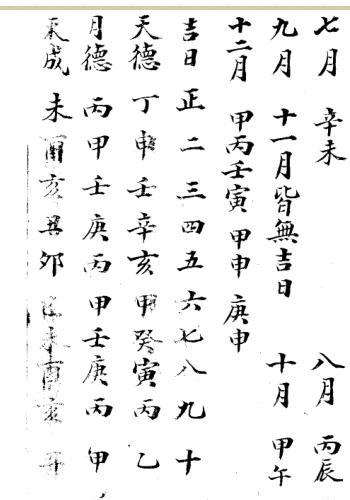 七月 辛未 八月 丙辰
九月 十一月皆無吉日 十月 甲午
十二月 甲丙壬寅 甲申 庚申
吉日 正 二 三 四 五 六 七 八 九 十
天德 丁 申 壬 辛 亥 甲 癸 寅 丙 乙
月德 丙 甲 壬 庚 丙 甲 壬 庚 丙 甲
天成 未 酉 亥 丑 卯 巳 未 酉 亥 丑